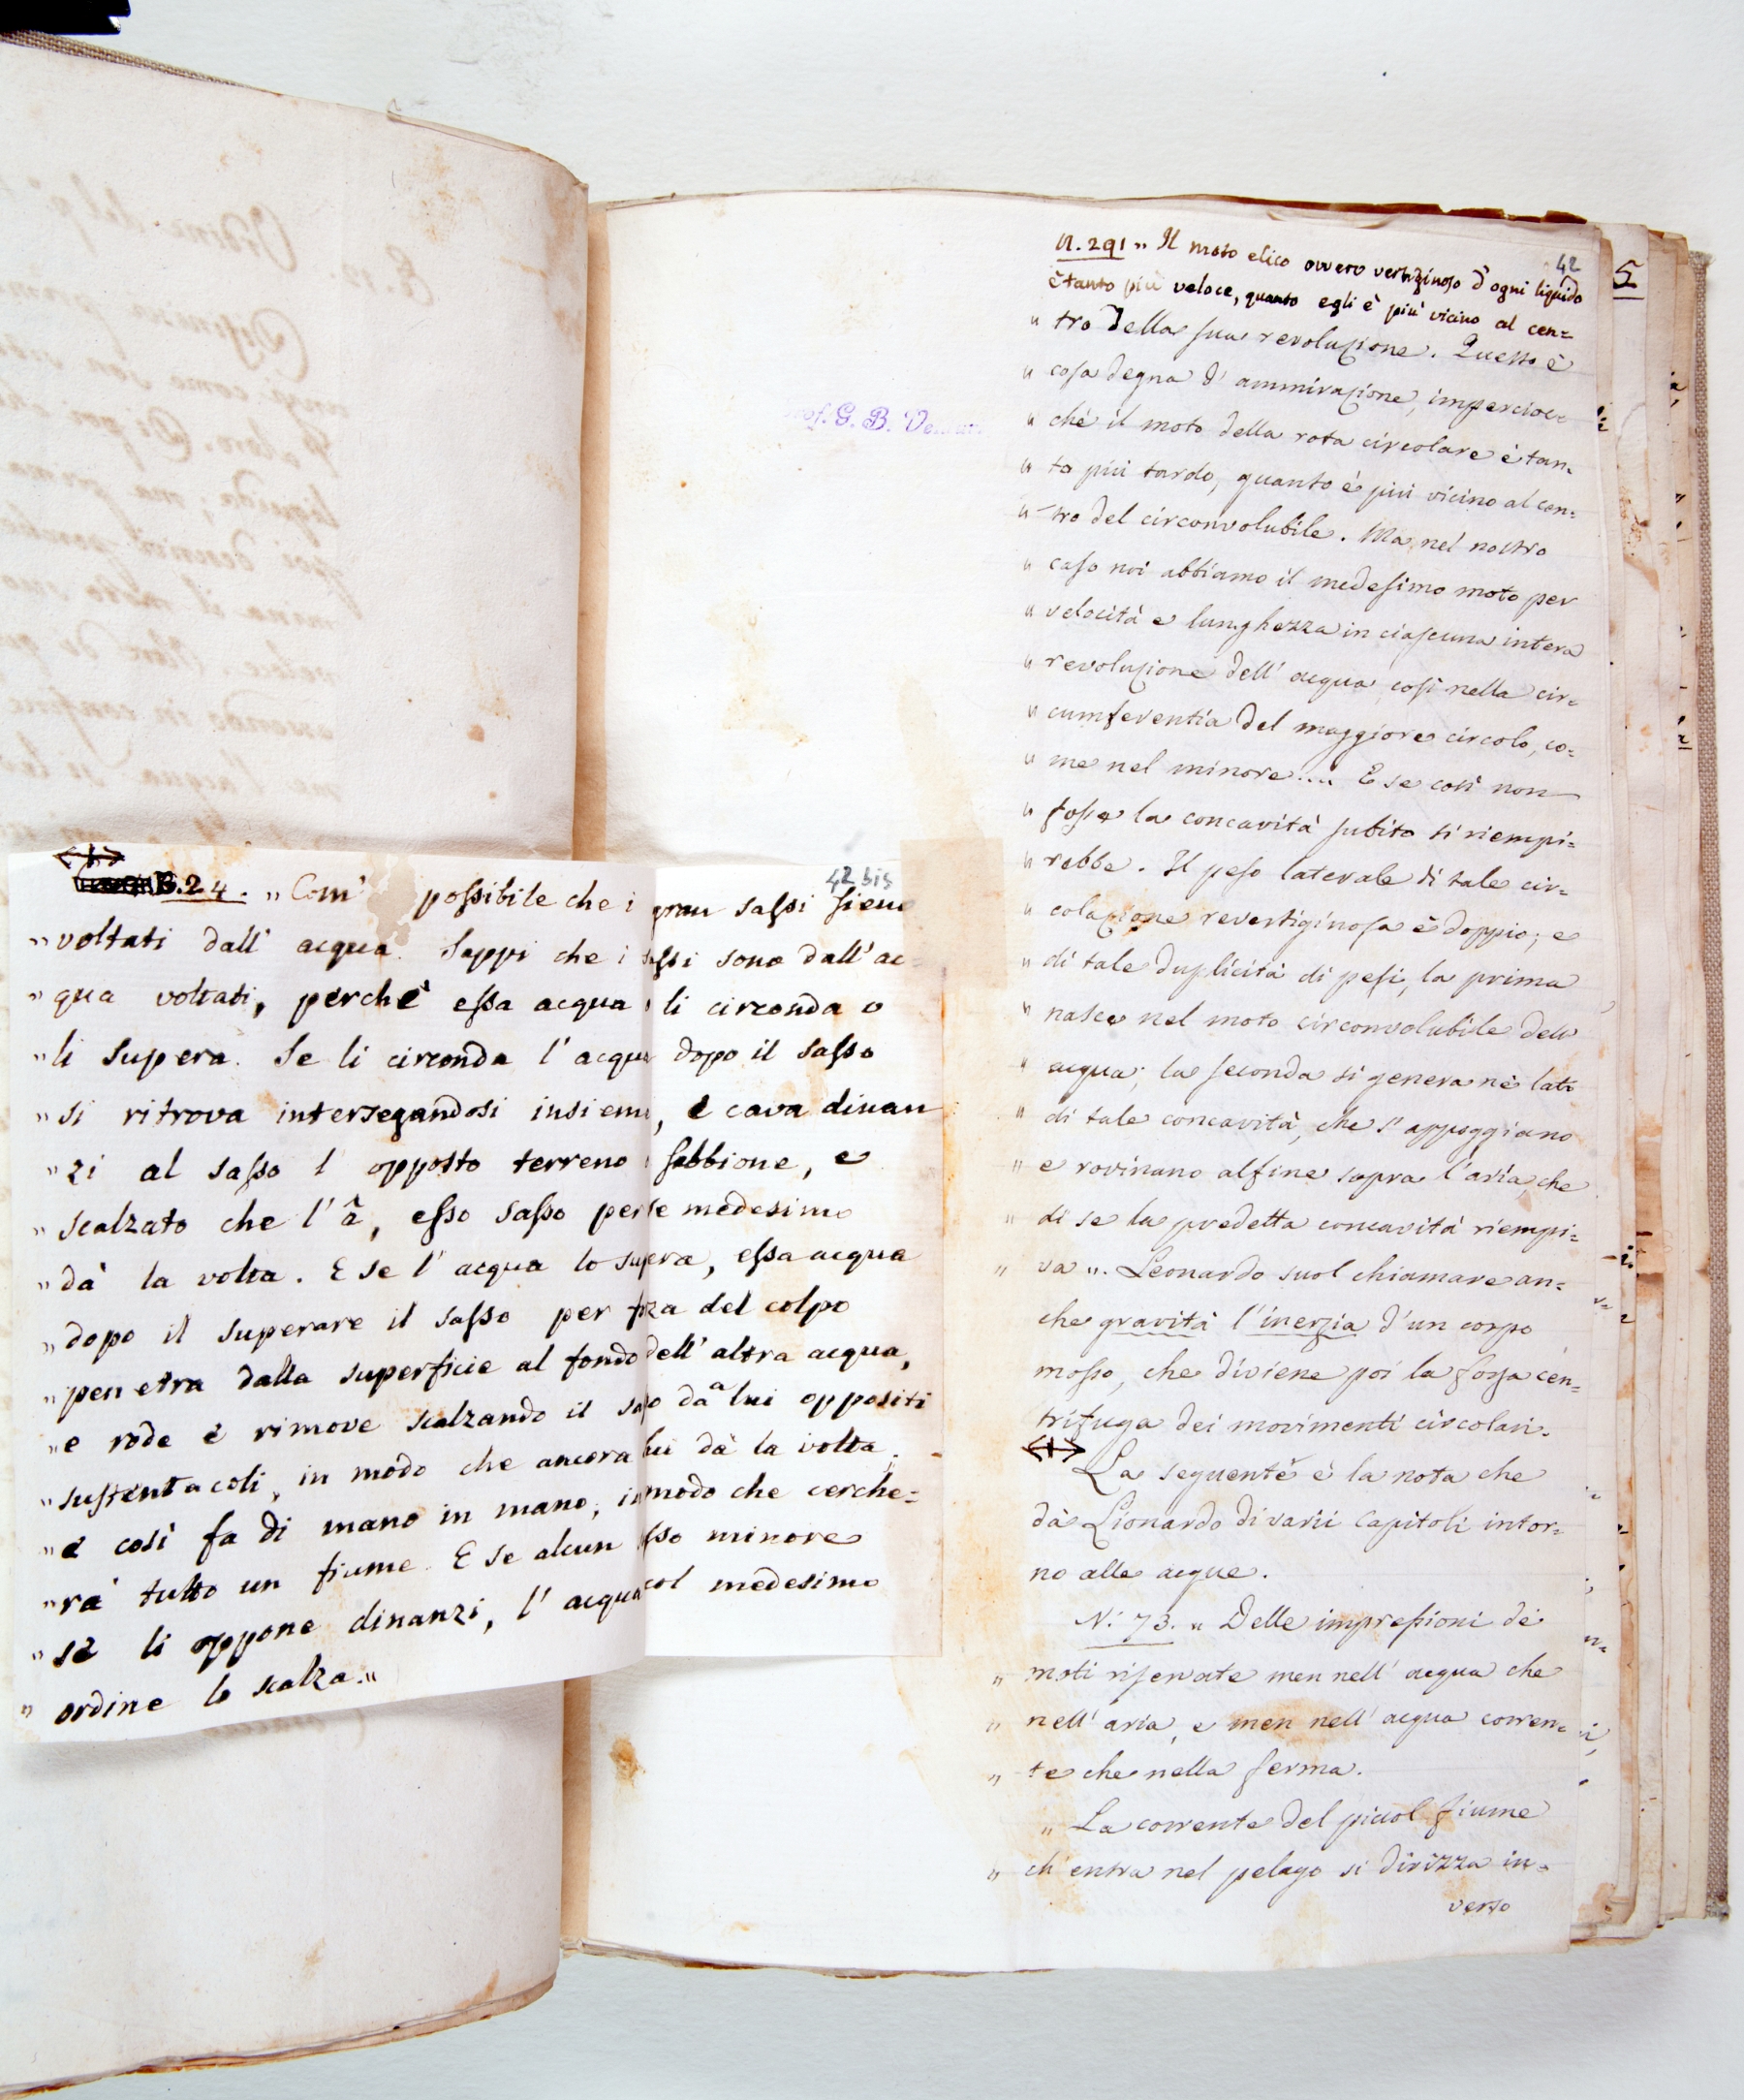 B.24. „ Com' possibile che i gran sassi sieno
42 bis
„ voltati dall' acqua. Sappi che i sassi sono dall' ac-
„ qua voltati, perchè essa acqua o li circonda o
„ li supera. Se li circonda l' acqua dopo il sasso
„ si ritrova intersegandosi insieme, e cava dinan
„ zi al sasso l' opposto terreno o sabbione, e
„ scalzato che l' â, esso sasso per se medesimo
„ dà la volta. E se l' acqua lo supera, essa acqua
„ dopo il superare il sasso per forza del colpo
„ penetra dalla superficie al fondo dell' altra acqua,
„ e rode e rimove scalzando il sasso da a lui oppositi
„ sustentacoli, in modo che ancora lui dà la volta.
„ e così fa di mano in mano, in modo che cerche=
„ rà tutto un fiume. E se alcun sasso minore
„ se li oppone dinanzi, l' acqua col medesimo
„ ordine lo scalza.„
Prof. G. B. Venturi
42
N. 291 „ Il moto elico ovvero vertiginoso d' ogni liquido
è tanto più veloce, quanto egli è più vicino al cen=
„ tro della sua revoluzione. Questo è
„ cosa degna d' ammirazione, impercioc=
„ chè il moto della rota circolare è tan=
„ to più tardo, quanto è più vicino al cen=
„ tro del circonvolubile. Ma nel nostro
„ caso noi abbiamo il medesimo moto per
„ velocità e lunghezza in ciascuna intera
„ revoluzione dell' acqua, così nella cir=
„ cumferentia del maggiore circolo, co=
„ me nel minore.... E se così non
„ fosse la concavità subito si riempi=
„ rebbe. Il peso laterale di tale cir=
„ colazione revertiginosa è doppio; e
„ di tale duplicità di pesi, la prima
„ nasce nel moto circonvolubile dell'
„ acqua; la seconda si genera nè lati
„ di tale concavità, che s' appoggiano
„ e rovinano alfine sopra l' aria, che
„ di se la predetta concavità riempi=
„ va „. Leonardo suol chiamare an=
che gravità l' inerzia d' un corpo
mosso, che diviene poi la forza cen=
trifuga dei movimenti circolari.
La seguente è la nota che
dà Lionardo di varii capitoli intor=
no alle acque.
N. 73. „ Delle impressioni de'
„ moti riservate men nell' acqua che
„ nell' aria, e men nell' acqua corren=
„ te che nella ferma.
„ La corrente del picciol fiume
„ ch' entra nel pelago si dirizza in=
verso